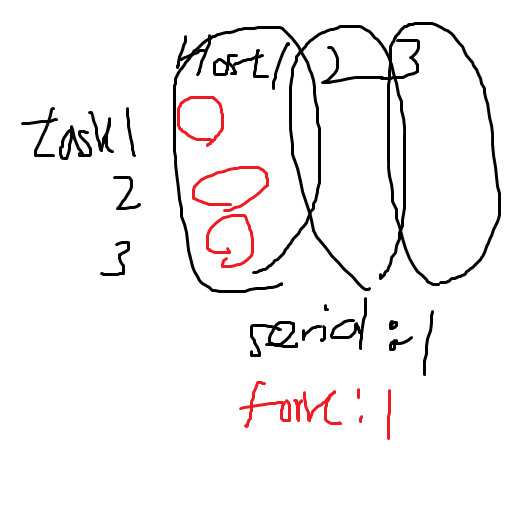 Host1 2 3
task1
2
3
serial:1
fork:1